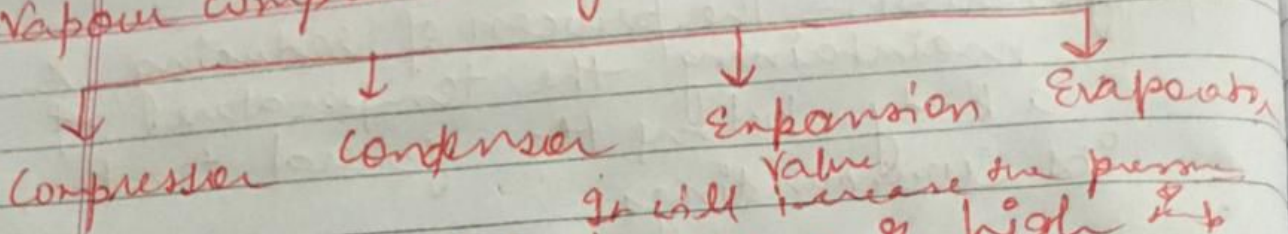 Vapour
Compressor Condenser Expansion Evaporator
Valve
It will increase the pressure
high